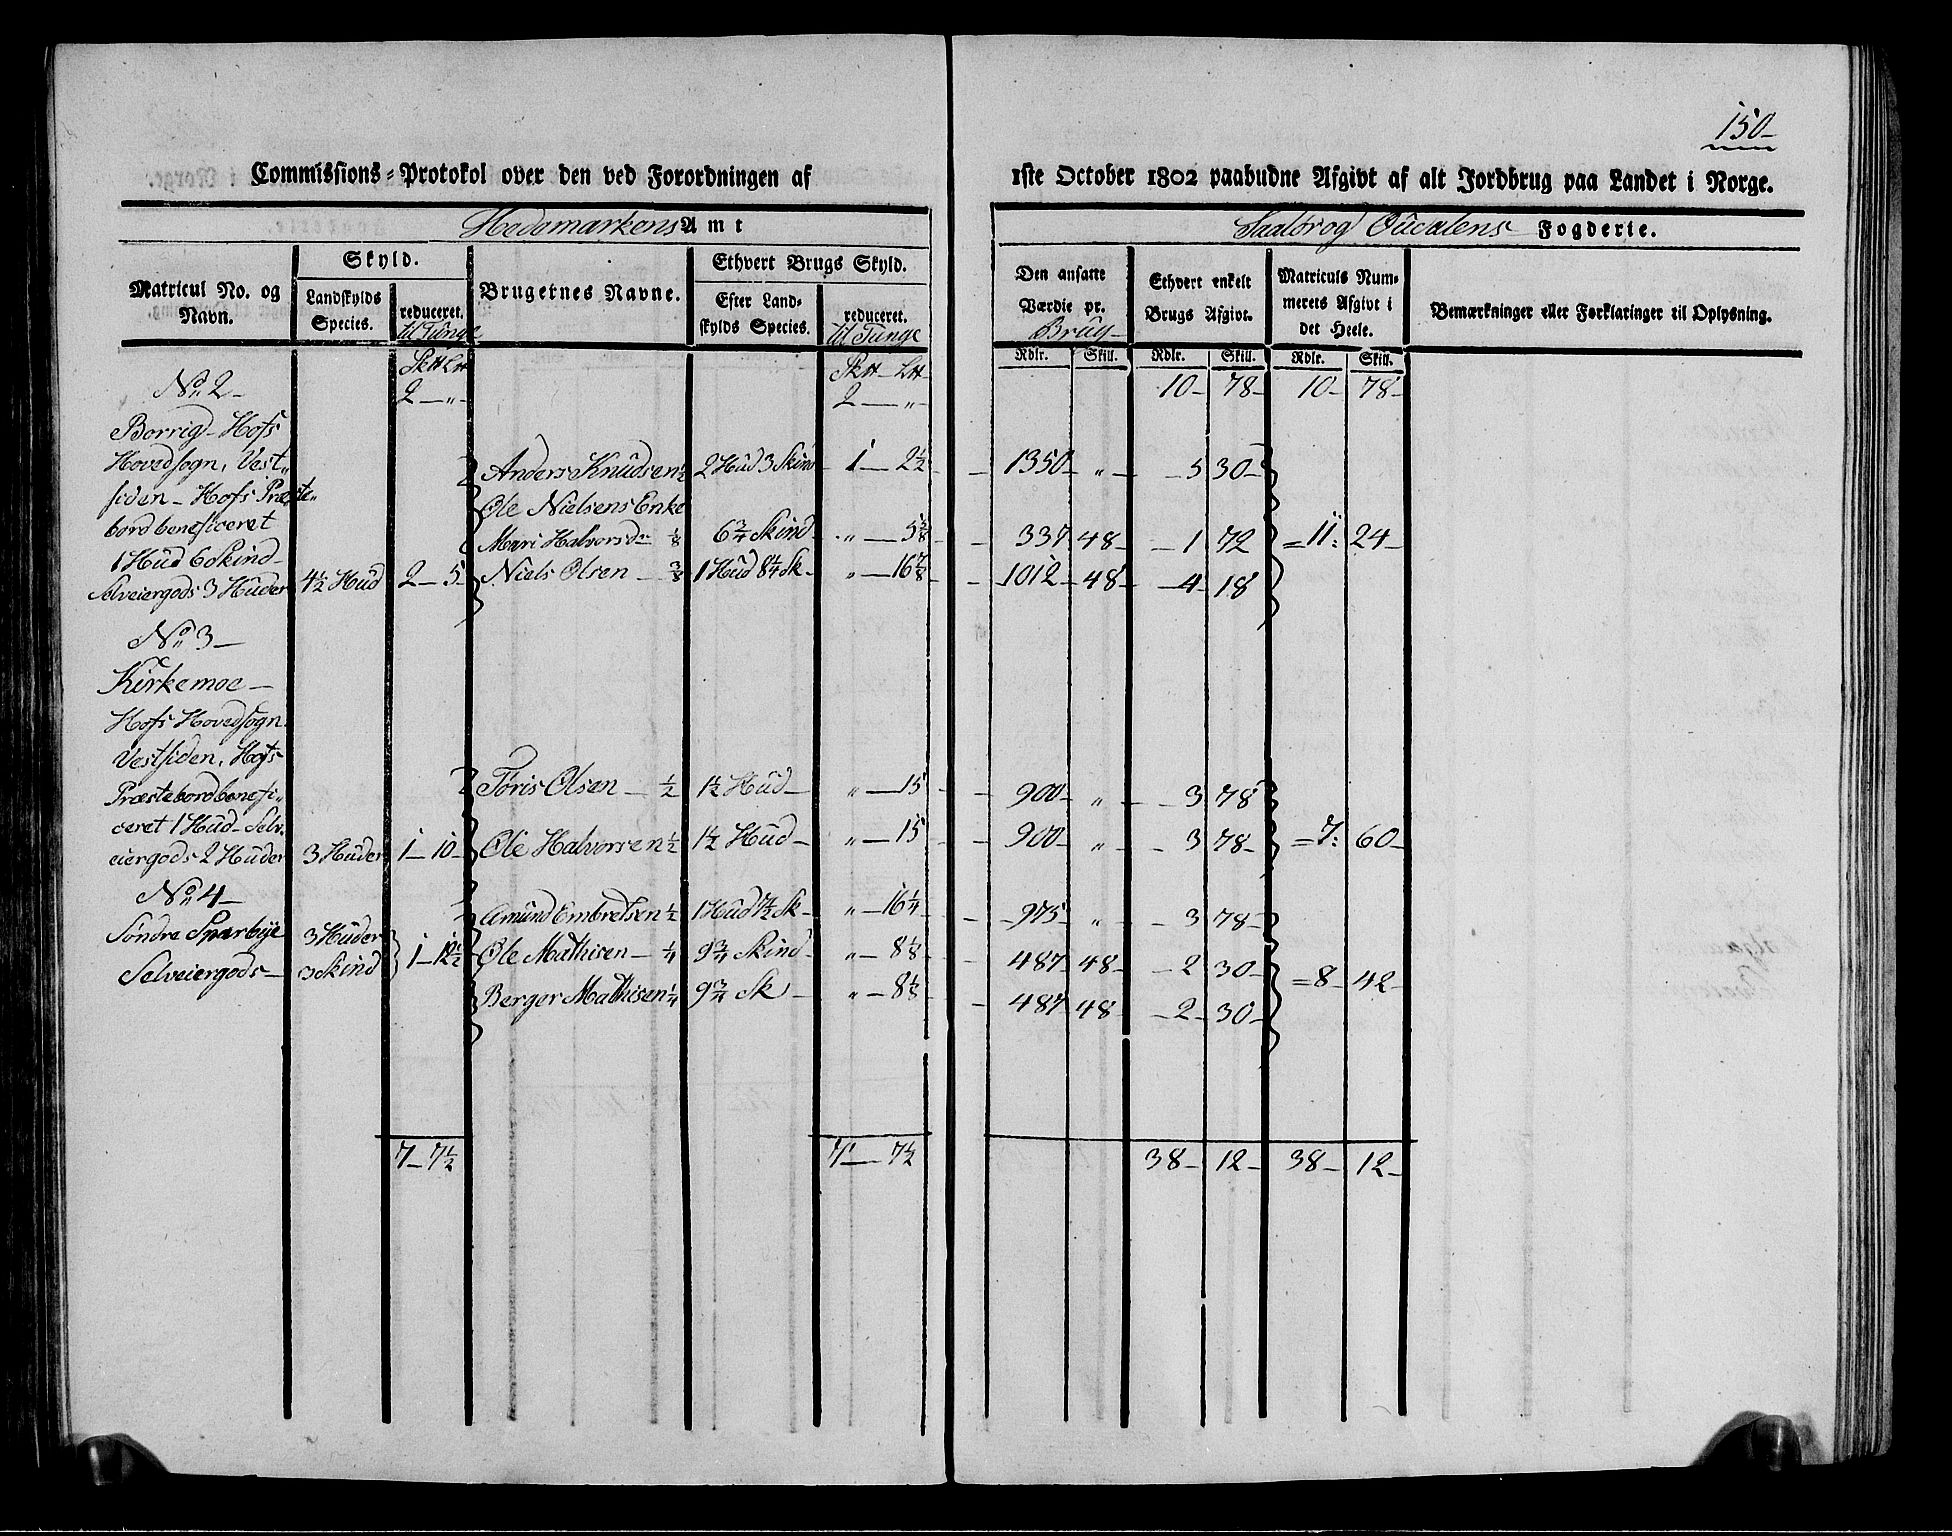 150-
Commissions-Protokol over den ved Forordningen af 1ste October 1802 paabudne Afgivt af alt Jordbrug paa Landet i Norge.
Hedemarkens Amt
Soløer og Oudalens Fogderie.
Matricul No. og Navn.
Skyld.
Landskylds Species.
reduceret.
til Tunge
Brugernes Navne.
Ethvert Brugs Skyld.
Efter Landskylds Species.
reduceret.
til Tunge
Den ansatte Værdie pr.
Brug
Ethvert enkelt Brugs Afgivt.
Matriculs Nummerets Afgivt i det Heele.
Bemærkninger eller Forklaringer til Oplysning.
Rdlr. Skill. Rdlr. Skill. Rdlr. Skill.
Sk℔ L℔ Sk℔ - L℔
2 - „ - 2 - „ - 10 - 78 - 10 - 78 -
No. 2 -
Borrig - Hofs
Hovedsogn, Vest„
siden - Hofs Præste„
bord beneficeret
1 Hûd 6 Skind -
Selveiergods 3 Hûder 4½ Hûd 2 - 5
Anders Knûdsen ½ 2 Hûd 3 Skind 1 - 2½ - 1350 - „ - 5 30 -
Ole Nielsens Enke
Mari Halvorsdr ⅛ 6¾ Skind - „ - 5⅝ - 337 48 - 1 72 = 11: 24 -
Niels Olsen - ⅜ 1 Hûd 8¼ Sk - „ - 16⅞ - 1012 - 48 - 4 - 18
No. 3 -
Kirkemoe -
Hofs Hovedsogn
Vestsiden, Hofs
Præstebord benefi„
ceret 1 Hûd - Selv„
eiergods 2 Hûder 3 Hûder 1 - 10 -
Tøris Olsen - ½ 1½ Hûd - „ - 15 - 900 - „ - 3 78
Ole Halvorsen ½ 1½ Hûd - „ - 15 - 900 - „ - 3 78 - = 7: 60 -
No. 4 -
Søndre Sparbye 3 Hûder
Selveiergods - 3 Skind 1 - 12½
Amûnd Embretsen ½ 1 Hûd 7½ Sk - „ - 16¼ - 975 - „ - 3 78 -
Ole Mathisen - ¼ 9¾ Skind - „ - 8⅛ - 487 48 - 2 30 - = 8 - 42 -
Berger Mathisen ¼ 9¾ Sk - „ - 8⅛ - 487 48 - 2 - 30 -
7 - 7½ 7 - 7½ 38 - 12 - 38 - 12 -